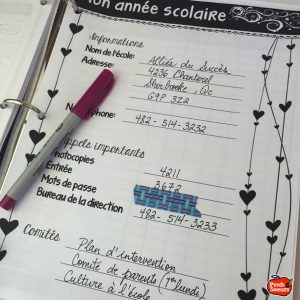 on année scolaire
Informations
Nom de l'école: Alliés du Succès
Adresse: 4236 Chanterel
Sherbrooke, Qc
G9P 3Z2
phone: 482-514-3232
pels importants
hotocopies 4211
Entrée 3672
Mots de passe
Bureau de la direction 482-514-3233
Comités Plan d'intervention
Comité de parents (1er lundi)
Culture à l'école
Profs et Soeurs